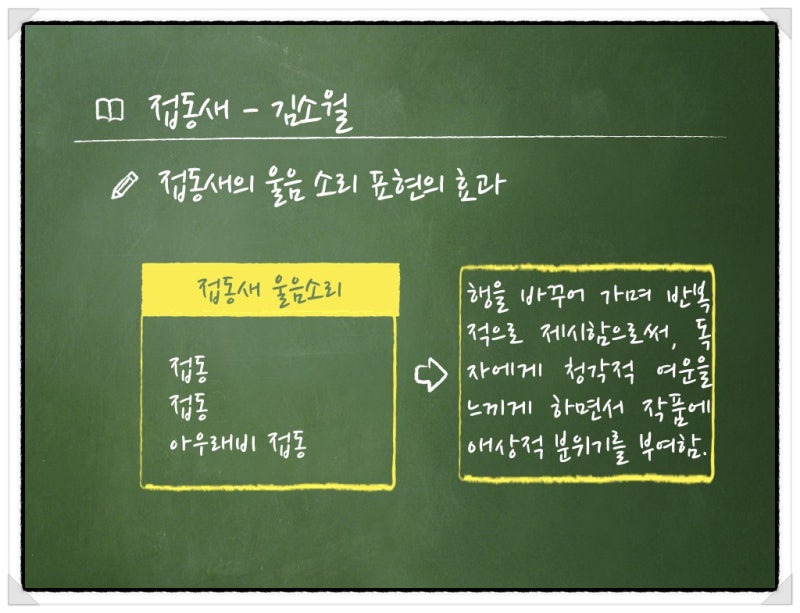 접동새 - 김소월
접동새의 울음 소리 표현의 효과
접동새 울음소리
접동
접동
아우래비 접동
행을 바꾸어 가며 반복
적으로 제시함으로써, 독
자에게 청각적 여운을
느끼게 하면서 작품에
애상적 분위기를 부여함.